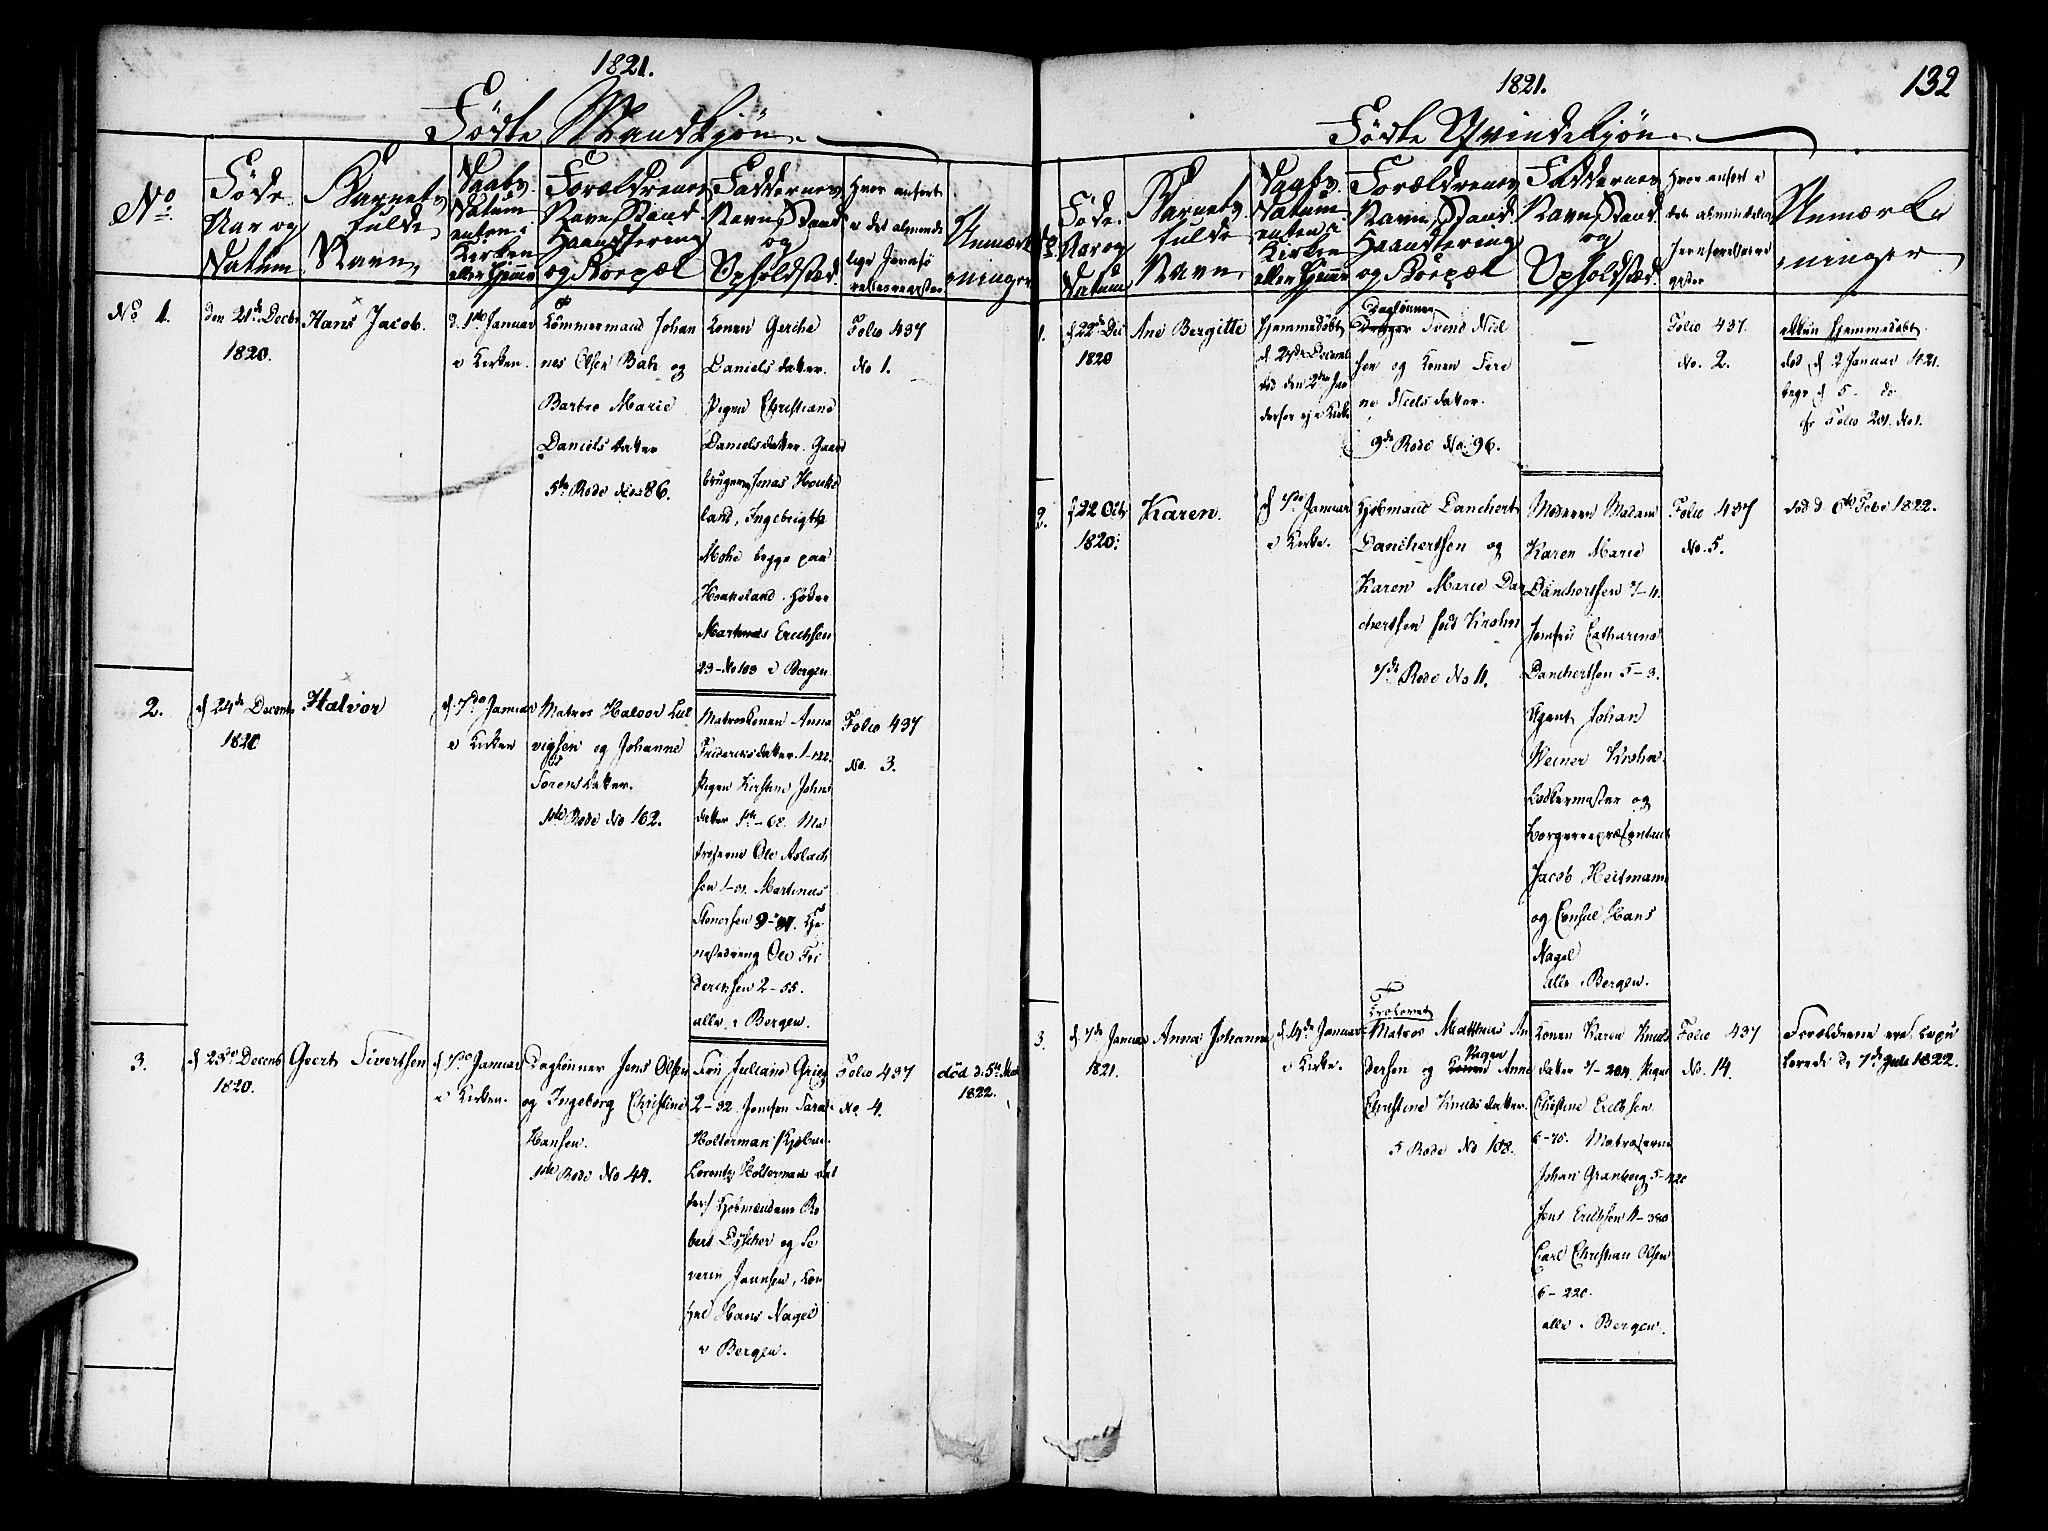 1821.
Födte Mandkjøn.
No
Føde
Aar og
Datum
Barnets
fulde
Navn
Daabs
Datum
enten i
Kirken
eller Hjemme
Forældrenes
Navn, Stand
Haandtering
og Boepæl
Faddernes
Navn, Stand
og
Opholdsted.
Hvor anført
i det alminde
lige Jevnfø
relsesregister
Anmærk
ninger
No 1.
den 21de Decbr
1820.
Hans Jacob.
d. 1ste Januar
i Kirken.
Tømmermand Johan
nes Olsen Bah og
Barbro Marie
Daniels datter
5te Rode No 86.
Konen Gerche
Daniels datter.
Pigen Christiane
Danielsdatter. Gaard
brugerne Jonas Houke
land, Ingebrigth
Mohe begge paa
Houkeland.
Martinus Erichsen
23-No 103 i Bergen
Folio 437
No 1.
2.
d 24de Decemb
1820
Halvor
d. 7de Januar
i Kirken
Matros Halvor Lul
vigsen og Johanne
Torensdatter.
1ste Rode No 162.
Matroskonen Anna
Frideriksdatter. 1-122.
Pigen Kirstine Johns
datter 1ste-68. Ma
troserne Ole Aslach
sen 1-31. Martinus
Stenersen 9-97.
nestedreng Ole Fri
derichsen 2-55.
alle i Bergen.
Folio 437
No. 3.
3.
d 23de Decemb
1820.
Geert Sivertsen
d 7de Januar
i Kirken.
Daglønner Jens Olsen
og Ingeborg Christine
Hansen.
1ste Rode No 44.
Fru Juliane Grieg
2-32. Jomfru Sara
Holterman Kjøbm.
Lorentz Holterman
Kjøbmændene Ro
bert Düscher og Se
verin Jannsen, Con
sul Hans Nagel
i Bergen.
Folio 437
No. 4.
död d. 5te Mai
1822.
132
1821.
Födte Qvindekjøn.
No
Føde
Aar og
Datum
Barnets
fulde
Navn
Daabs
Datum
enten i
Kirken
eller Hjemme
Forældrenes
Navn, Stand
Haandtering
og Boepæl
Faddernes
Navn, Stand
og
Opholdsted.
Hvor anført i
det almindelige
Jevnførelsesre
gister
Anmærk
ninger
1.
d 22de Dec
1820
Ane Bergitte
Hjemmedøbt
d. 27de Decemb
død den 2den Jan
derfor ej i Kirke
Daglønner
Svend Niel
sen og Konen Sere
ne Nielsdatter.
9de Rode No. 96.
—
Folio 437.
No. 2.
ikkun Hjemmedøbt
död d 2 Januar 1821.
begr d 5. do
fr Folio 201. No 1.
2.
d 22 Octr
1820.
Karen.
d 7de Januar
i Kirke.
Kjøbmand Danchert
Danchertsen og
Karen Marie Dan
chertsen født Krohn
7de Rode No 11.
Moderen Madam
Karen Marie
Danchertsen 7-11.
Jomfru Catharine
Danchertsen 5-3.
Agent Johan
Werner Krohn.
Lodtermester og
borgerrepræsentant
Jacob Heitmann
og Consul Hans
Nagel
alle i Bergen.
Folio 437
No. 5.
död d. 6te Febr 1822.
3.
d 7de Januar
1821.
Anna Johanne
d 14de Januar
i Kirke.
Trolovet
Matros Matthias An
dersen og Pigen Anne
Christine Knudsdatter.
5 Rode No 108.
Konen Karen Knuds
datter 7-204. Pigen
Christine Erichsen
6-70. Matroserne
Johan Granberg 5-120
Jens Erichsen 11-380
Carl Christian Olsen
6-220.
alle i Bergen.
Folio 437
No. 14.
Forældrene ere Copu
lerede d. 7de Julii 1822.